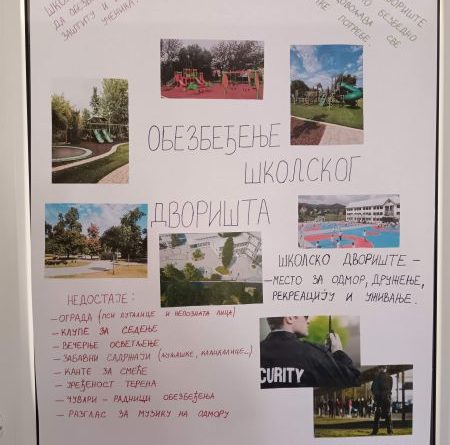 ДА ОБЕЗБ
ЗАШТИТУ И
УЧЕНИКА
ДВОРИШТЕ
БЕЗБЕДНО
СВЕ
ПОТРЕБЕ.
ОБЕЗБЕЂЕЊЕ
ШКОЛСКОГ
ДВОРИШТА
ШКОЛСКО ДВОРИШТЕ –
– МЕСТО ЗА ОДМОР, ДРУЖЕЊЕ,
РЕКРЕАЦИЈУ И УЖИВАЊЕ.
НЕДОСТАЈЕ:
– ОГРАДА (ПСИ ЛУТАЛИЦЕ И НЕПОЗНАТА ЛИЦА)
– КЛУПЕ ЗА СЕДЕЊЕ
– ВЕЧЕРЊЕ ОСВЕТЉЕЊЕ
– ЗАБАВНИ САДРЖАЈИ (ЉУЉАШКЕ, КЛАЦКАЛИЦЕ...)
– КАНТЕ ЗА СМЕЋЕ
– УРЕЂЕНОСТ ТЕРЕНА
– ЧУВАРИ – РАДНИЦИ ОБЕЗБЕЂЕЊА
– РАЗГЛАС ЗА МУЗИКУ НА ОДМОРУ
CURITY